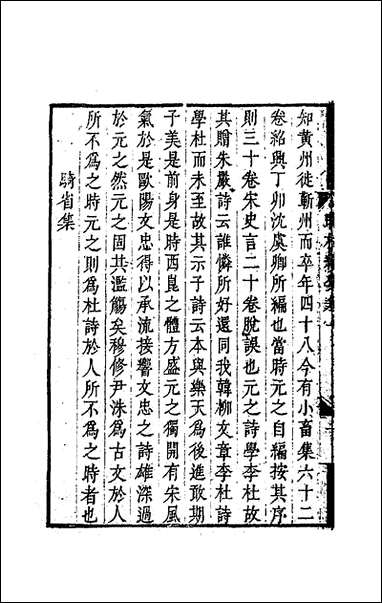 知黄州徙蘄州而卒年四十八今有小畜集六十二
卷紹興丁卯沈虞卿所編也當時元之自編按其序
則三十卷宋史言二十卷脫誤也元之詩學李杜故
其贈朱嚴詩云誰憐所好還同我韓柳文章李杜詩
學杜而未至故其示子詩云本與樂天爲後進敢期
子美是前身是時西崑之體方盛元之獨開有宋風
氣於是歐陽文忠得以承流接響文忠之詩雄深過
於元之然元之固其濫觴矣穆修尹洙爲古文於人
所不爲之時元之則爲杜詩於人所不爲之時者也
騎省集